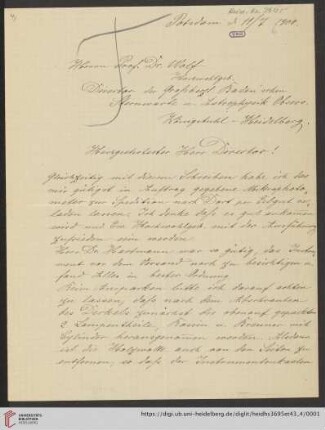 Potsdam d. 19/7 1901.
Herrn Prof. Dr. Wolf
Hochwohlgeb.
Director der Großherzl. Baden'schen
Sternwarte u. Astrophysik. Observ.
Königstuhl - Heidelberg.
Hochgeehrtester Herr Director!
Gleichzeitig mit diesem Schreiben habe ich das
mir gütigst in Auftrag gegebene Mikrophoto-
meter zur Spedition nach Dort per Eilgut ver-
laden lassen. Ich denke daß es gut ankommen
wird und Euer Hochwohlgeb. mit der Ausführung
zufrieden sein werden.
Herr Dr. Hartmann war so gütig, das Instru-
ment vor dem Versand noch zu besichtigen u.
fand Alles in bester Ordnung.
Beim Auspacken bitte ich darauf achten
zu lassen, daß nach dem Abschrauben
des Deckels zunächst die obenauf gepackten
2 Lampentheile, Bassin u. Brenner mit
Cylinder herausgenommen werden. Alsdann
ist die Holzwolle auch aus den Seiten zu
entfernen, so daß der Instrumentenkasten
UNIVERSITÄTS-
BIBLIOTHEK
HEIDELBERG
http://digi.ub.uni-heidelberg.de/diglit/heidhs3695et43_4/0001